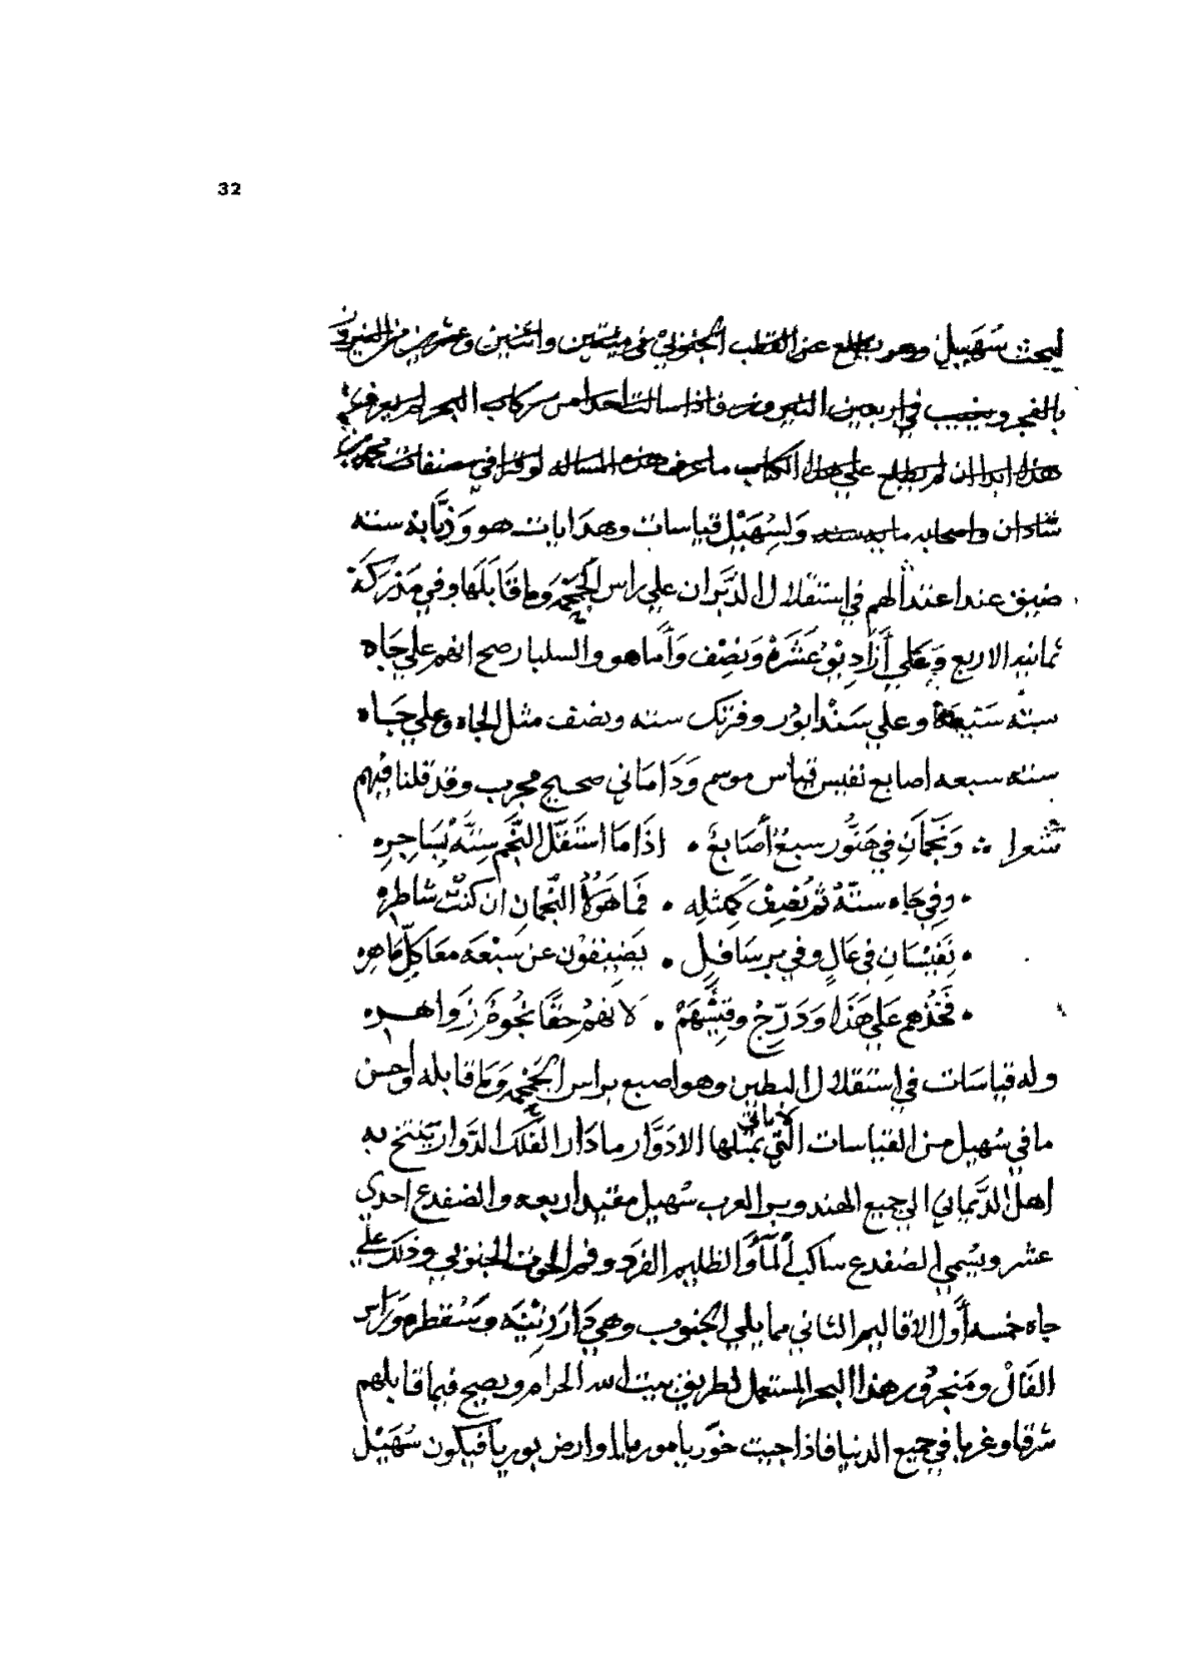 32
لبحث سُهَيل وهو يطلع عن القطب الجنوبي في ميتين واثنين وعشرين من النيروز
بالفجر ويغيب في اربعين النيروز فاذا سالت احدا من ركاب البحر لم يعرف
هذا ابدا ان لم يطلع علي هذا الكتاب ما عرف هذه المساله لو قرا في مصنفات محمد بن
شاذان واصحابه ماية سنه وَلِسُهَيْل قياسات وهدايات هو وَذُبَّانه سته
ضيق عند اعتدالهم في استقلال الدَّبَران علي راس الحَجمَه وَما قَابَلَهَا وفي مَدْرَكَة
ثمانيه الاربع وَعَلي أَزَادِيْو عَشَرَة وَنصْف وَأَما هو والسلبار صح انهم علي جَاه
سِتّه سَبْعَة وعلي سَنْدابُور وفرنك سته ونصف مثل الجاه وعلي جَاه
سته سبعه اصابع نفيس قياس موسم وَدَامَاني صحيح مجرب وقد قلنا فيهم
شعرا ∴ وَنَجْمَانِ في هَنُّور سبعُ أَصَابِعٌ • اذَا مَا استَقَلّ النَّجم سِتَّة بسَاجِره
• وفي جَاه ستّةٌ ثم نُصِفَ كَمِثلِه • فَمَا هَوُلَاءُ النَّجمان ان كنْت شاطره
• نَفِيْسَانِ في عَالٍ وفي بر سَافِلٍ • يَضِيفُون عن سَبْعَه معَا كلّ مَاهره
• فَخُذْهم عَلي هَذَا وَدَرِّجْ وقِسْهُمْ • لَانهم حَقًّا نجُوم زَوَاهره
وله قيَاسَات في اسْتقلال البطين وهو اصبع براس الحَجمَه وَمَا قابله وأحسن
ما في سُهيل من القياسات التي لا ياتي بمثلها الادوَار ما دَار الفَلك الدَّوار يَنتَخ به
اهل الدَّيماني الي جميع الهند وبر العرب سُهيل مقيد اربعه والضفدع احدي
عشر ويُسَمي الضفدع ساكب ألمَآء والظليم الفَرد وفم الحوت الجنوبي وذلك علي
جاه خمسه أَول الاقاليم الثاني مما يلي الجنوب وهي دَار زِيْنَه وسُقطره وَرَاس
الفَالْ ومَنجرُور هذا البحر المستعمل لطريق بيت الله الحرام ويصح فيما قابلهم
شرقا وغربا في جميع الدنيا فاذا جيت خَور يامور ماما وارض بوريا فيكون سُهَيْل